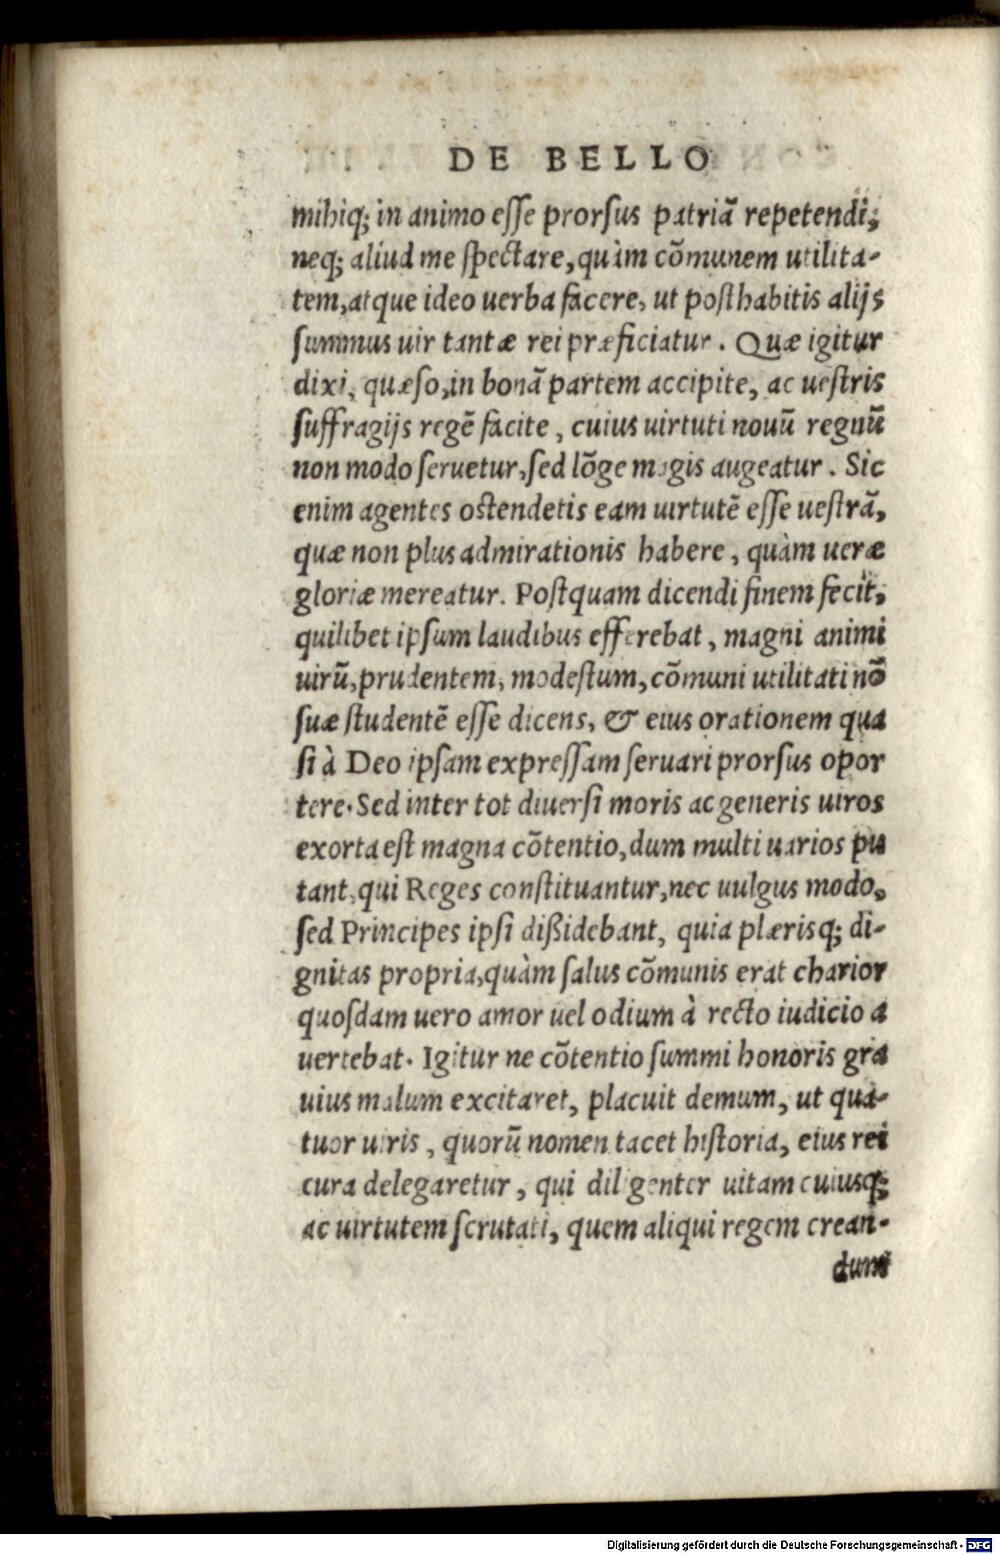 DE BELLO
mihiq; in animo esse prorsus patriã repetendi,
neq; aliud me spectare, quàm cõmunem utilita-
tem, atque ideo uerba facere, ut posthabitis alijs
summus uir tantæ rei præficiatur. Quæ igitur
dixi, quæso, in bonã partem accipite, ac uestris
suffragijs regẽ facite, cuius uirtuti nouũ regnũ
non modo seruetur, sed lõge magis augeatur. Sic
enim agentes ostendetis eam uirtutẽ esse uestrã,
quæ non plus admirationis habere, quàm ueræ
gloriæ mereatur. Postquam dicendi finem fecit,
quilibet ipsum laudibus efferebat, magni animi
uirũ, prudentem, modestum, cõmuni utilitati nõ
suæ studentẽ esse dicens, & eius orationem qua
si à Deo ipsam expressam seruari prorsus opor
tere. Sed inter tot diuersi moris ac generis uiros
exorta est magna cõtentio, dum multi uarios pu
tant, qui Reges constituantur, nec uulgus modo,
sed Principes ipsi dißidebant, quia plærisq; di-
gnitas propria, quàm salus cõmunis erat charior
quosdam uero amor uel odium à recto iudicio a
uertebat. Igitur ne cõtentio summi honoris gra
uius malum excitaret, placuit demum, ut qua-
tuor uiris, quorũ nomen tacet historia, eius rei
cura delegaretur, qui diligenter uitam cuiusq;
ac uirtutem scrutati, quem aliqui regem crean-
dum
Digitalisierung gefördert durch die Deutsche Forschungsgemeinschaft - DFG